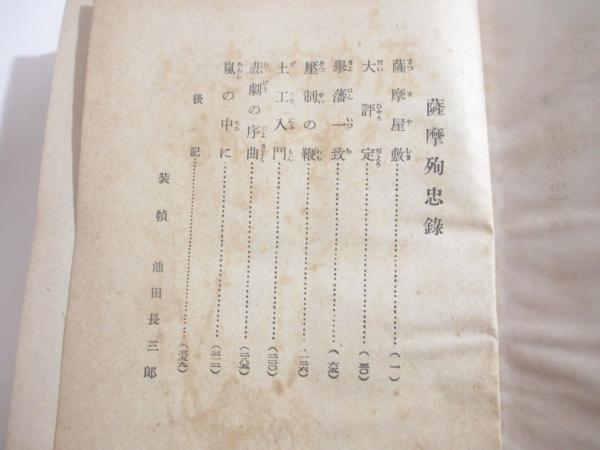 薩摩殉忠錄
薩摩屋敷…………(一)
大評定…………(三〇)
擧藩一致…………(六五)
壓制の鞭…………(一二六)
土工入門…………(二二〇)
悲劇の序曲…………(二八五)
嵐の中に…………(三一二)
後記…………(三五九)
裝幀 池田長三郎